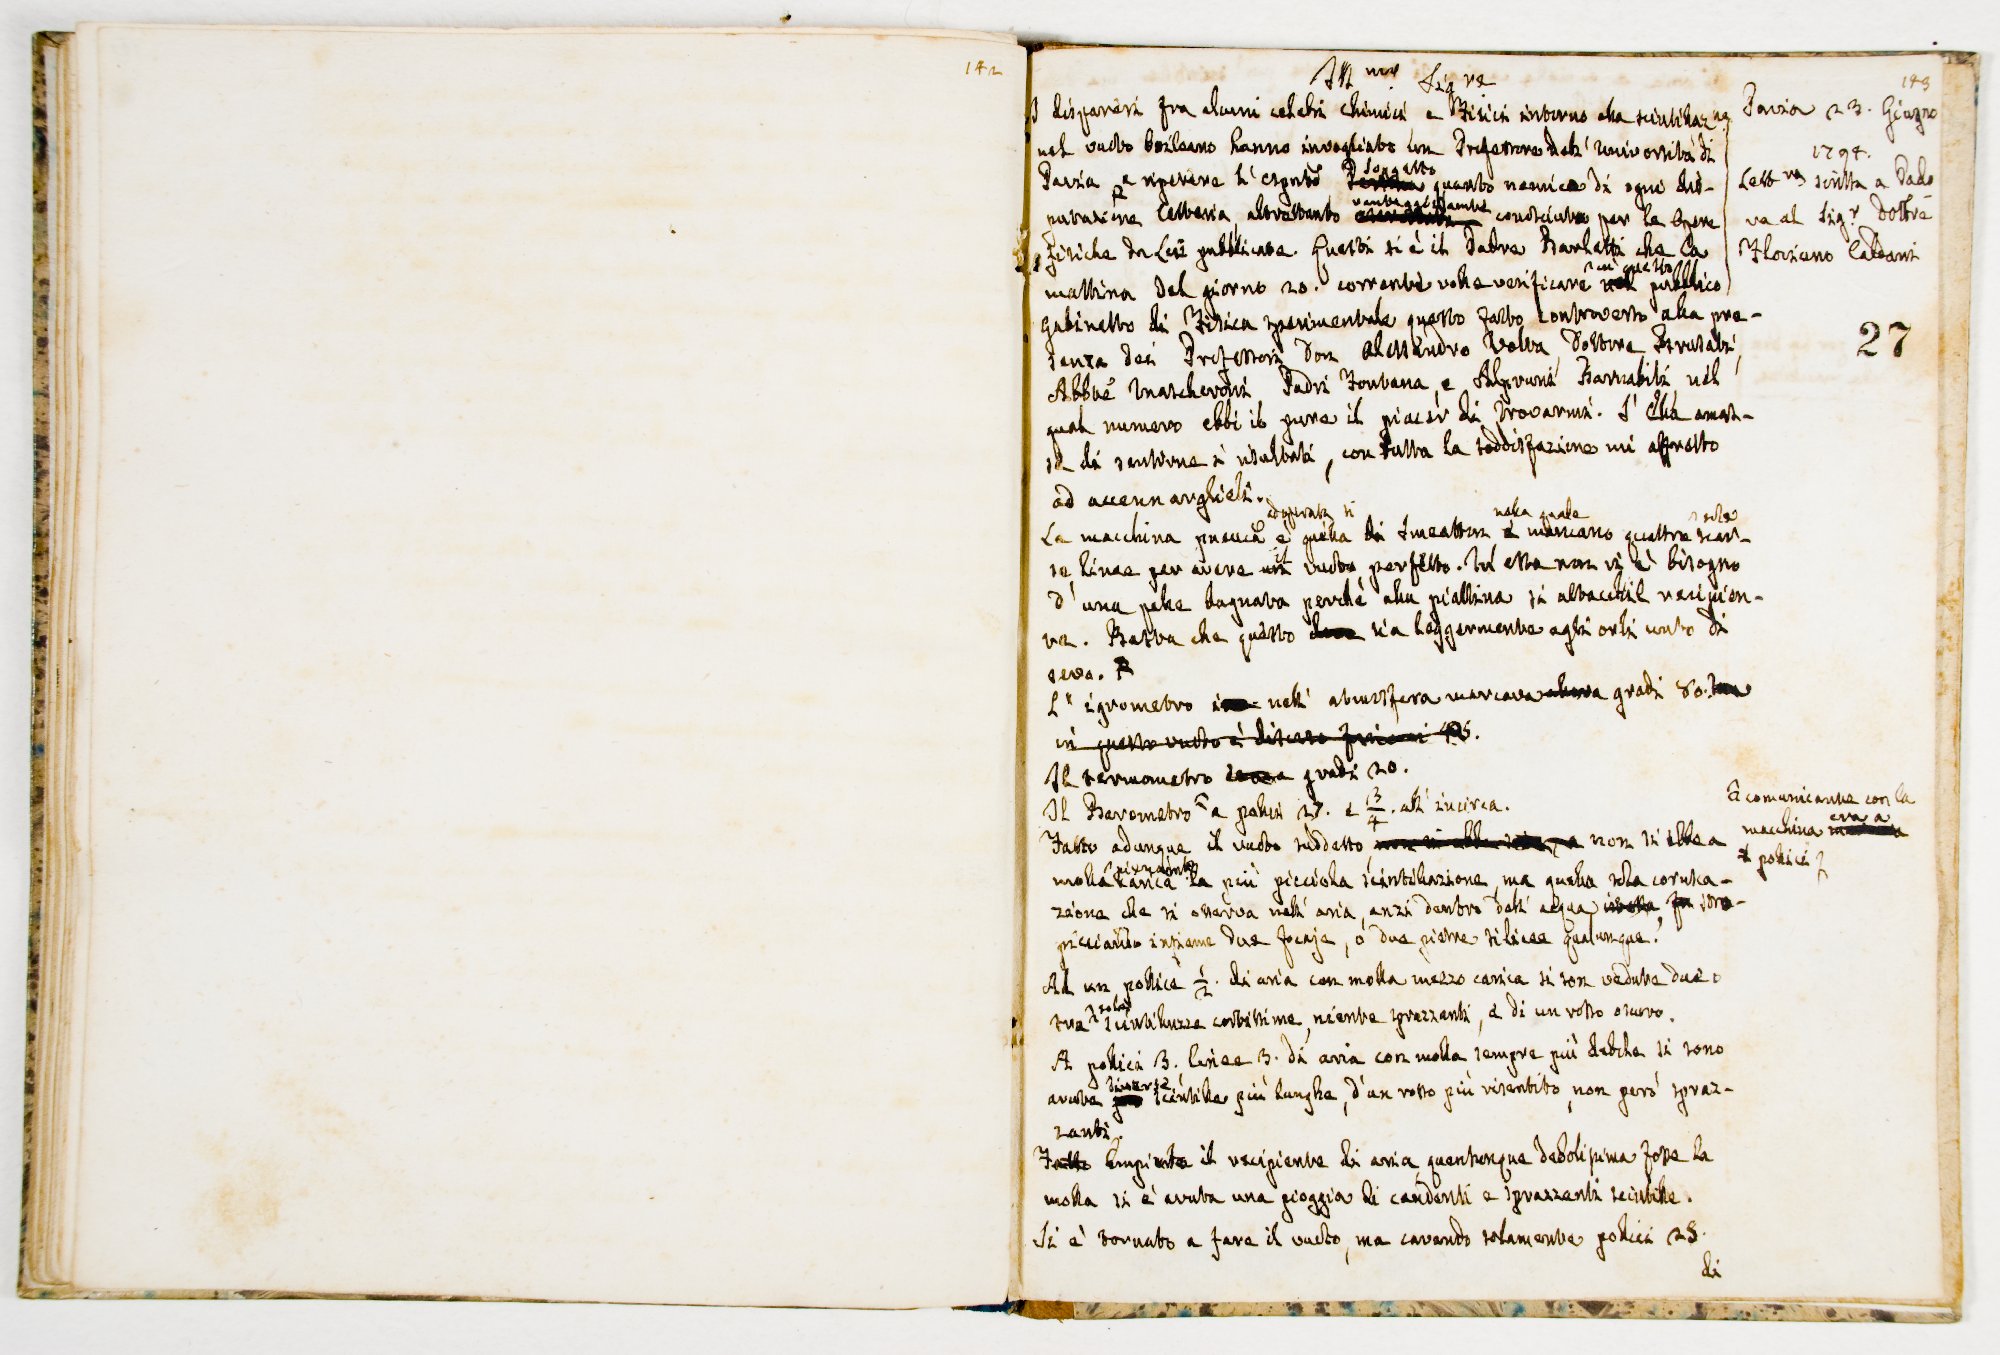 142
143
Ill.mo Sig.re
Pavia 23. Giugno
1794.
Lett.ra scritta a Pado
va al Sig.r Dott.re
Floriano Caldani
27
I dispareri fra alcuni celebri Chimici e Fisici intorno alla scintillaz.ne
nel vuoto boileano hanno invogliato un Professore dell' Università di
Pavia a ripetere l'
soggetto
quanto nemico di ogni dis-
putazione letteraria, altrettanto
vantaggiosamente
conosciuto per le Opere
fisiche da Lui pubblicate. Questi si è il Padre Barletti che la
mattina del giorno 20. corrente volle verificare
in questo
pubblico
gabinetto di Fisica sperimentale questo fatto controverso alla pre-
senza dei Professori Don Alessandro Volta, Dottore Brusati,
Abbate Mascheroni, Padri Fontana, e Alpruni Barnabiti nel
qual numero ebbi io pure il piacer di trovarmi. S' Ella amas-
se di sentirne i risultati, con tutta la soddisfazione mi affretto
ad accennarglieli.
adoperata si
nella quale
sole
La macchina pneuca è quella di Smeatton mancano quattro scar-
se linee per avere
il
vuoto perfetto. In essa non vi è bisogno
d' una pelle bagnata perchè alla piattina si attacchi il recipien-
te. Basta che questo sia leggermente agli orli unto di
sevo.
L' igrometro nell' atmosfera marcava gradi 80.
in questo vuoto è disceso
Il termometro gradi 20.
Il Barometro a pollici 27. e 3/4. all' incirca.
comunicante con la
macchina
era a
pollici
Fatto adunque il vuoto suddetto non si ebbe a
molla
pienamente
carica la più picciola scintillazione, ma quella sola corusca-
zione che si osserva nell' aria, anzi dentro dell' acqua, stro-
picciando insieme due focaje, o due pietre silicee qualunque.
Ad un pollice 1/2. di aria con molla mezzo carica si son vedute due o
tre
sole
scintiluzze cortissime, niente sprazzanti, e di un rosso oscuro.
A pollici 3. linee 3. di aria con molla sempre più debole si sono
avute
diverse
scintille più lunghe, d'un rosso più risentito, non però spraz-
zanti.
Fatto Empiuto il recipiente di aria quantunque debolissima fosse la
molla si è avuta una pioggia di candenti e sprazzanti scintille.
Si è tornato a fare il vuoto, ma cavando solamente pollici 25.
di